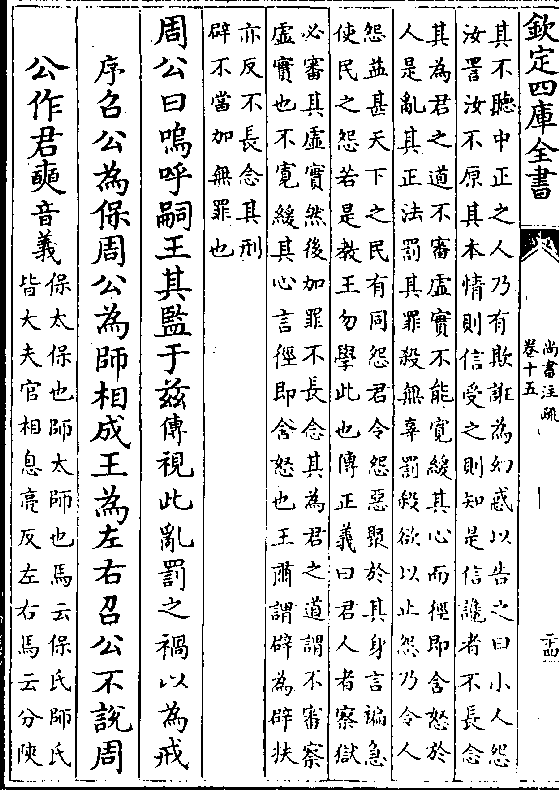 欽定四庫全書
尚書注疏
卷十五
二十四
其不聽中正之人乃有欺誑為幻惑以告之曰小人怨
汝詈汝不原其本情則信受之則知是信讒者不長念
其為君之道不審虛實不能寛緩其心而徑即含怒於
人是亂其正法罰其罪殺無辜罰殺欲以止怨乃令人
怨益甚天下之民有同怨君令怨惡聚於其身言褊急
使民之怨若是教王勿學此也傳正義曰君人者察獄
必審其虛實然後加罪不長念其為君之道謂不審察
虛實也不寛緩其心言徑即含怒也王肅謂辟為辟扶
亦反不長念其刑
辟不當加無罪也
周公曰嗚呼嗣王其監于兹傳視此亂罰之禍以為戒
序召公為保周公為師相成王為左右召公不說周
公作君奭音義
保太保也師太師也馬云保氏師氏
皆大夫官相息亮反左右馬云分陝